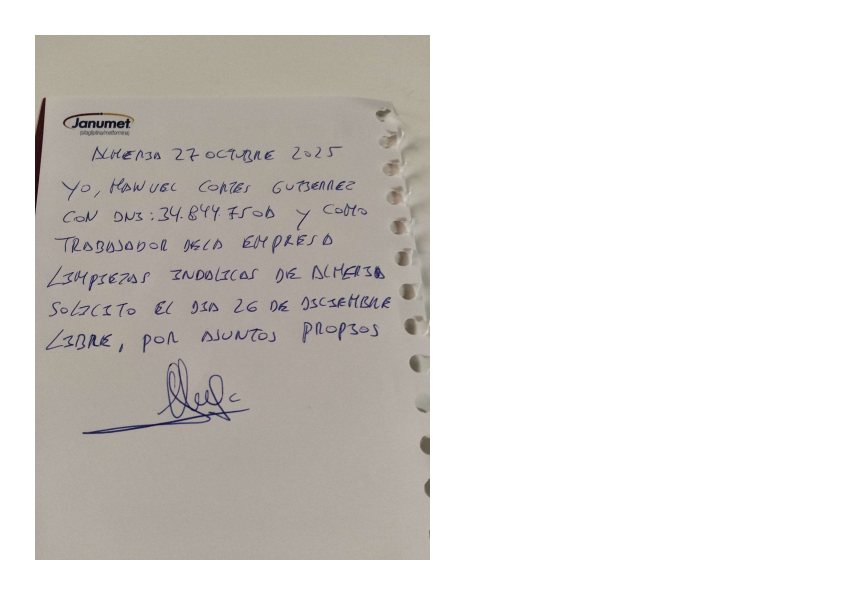 Janumet
(sitagliptina/metformina)
ALMERIA 27 OCTUBRE 2025
YO, MANUEL CORTES GUTIERREZ
CON DNI: 34.844.750A Y COMO
TRABAJADOR DELA EMPRESA
LIMPIEZAS INDALICAS DE ALMERIA
SOLICITO EL DIA 26 DE DICIEMBRE
LIBRE, POR ASUNTOS PROPIOS